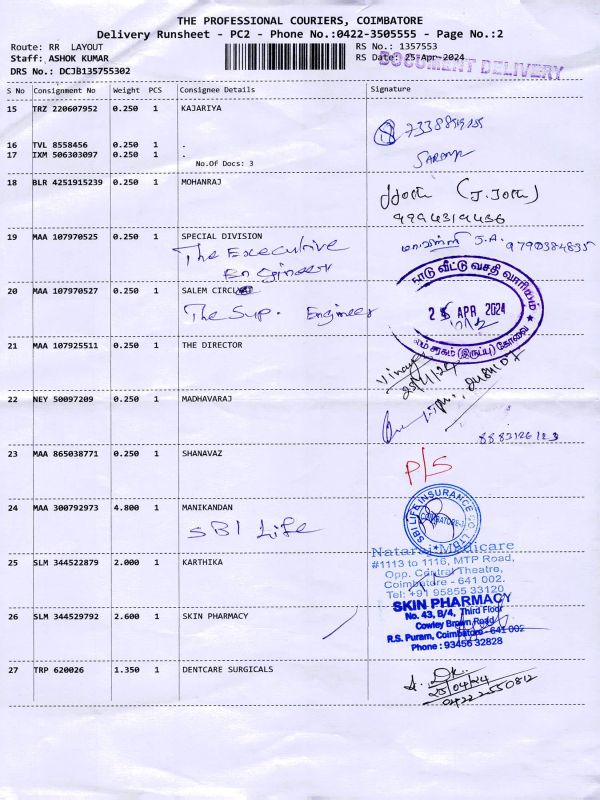 THE PROFESSIONAL COURIERS, COIMBATORE
Delivery Runsheet - PC2 - Phone No.:0422-3505555 - Page No.:2
Route: RR LAYOUT
RS No.: 1357553
Staff: ASHOK KUMAR
RS Date: 25-Apr-2024
DOCUMENT DELIVERY
DRS No.: DCJB135755302
S No Consignment No Weight PCS Consignee Details Signature
15 TRZ 220607952 0.250 1 KAJARIYA
16 TVL 8558456 0.250 1 .
17 IXM 506303097 0.250 1 .
No.Of Docs: 3
18 BLR 4251915239 0.250 1 MOHANRAJ
(J. Joth)
9994319456
19 MAA 107970525 0.250 1 SPECIAL DIVISION
The Executive
Engineer
J.A. 9790384835
20 MAA 107970527 0.250 1 SALEM CIRCLE
The Sup. Engineer
நாடு வீட்டு வசதி வாரியம்
25 APR 2024
(இருப்பு) கோவை
21 MAA 107925511 0.250 1 THE DIRECTOR
22 NEY 50097209 0.250 1 MADHAVARAJ
23 MAA 865038771 0.250 1 SHANAVAZ
P/S
24 MAA 300792973 4.800 1 MANIKANDAN
SBI Life
SBI LIFE INSURANCE CO. LTD.
COIMBATORE-1
25 SLM 344522879 2.000 1 KARTHIKA
Nataraj Medicare
#1113 to 1116, MTP Road,
Opp. Central Theatre,
Coimbatore - 641 002.
Tel: +91 95855 33120
26 SLM 344529792 2.600 1 SKIN PHARMACY
SKIN PHARMACY
No. 43, B/4, Third Floor
Cowley Brown Road
R.S. Puram, Coimbatore - 641 002
Phone : 93456 32828
27 TRP 620026 1.350 1 DENTCARE SURGICALS
25/04/24
0422 2550812